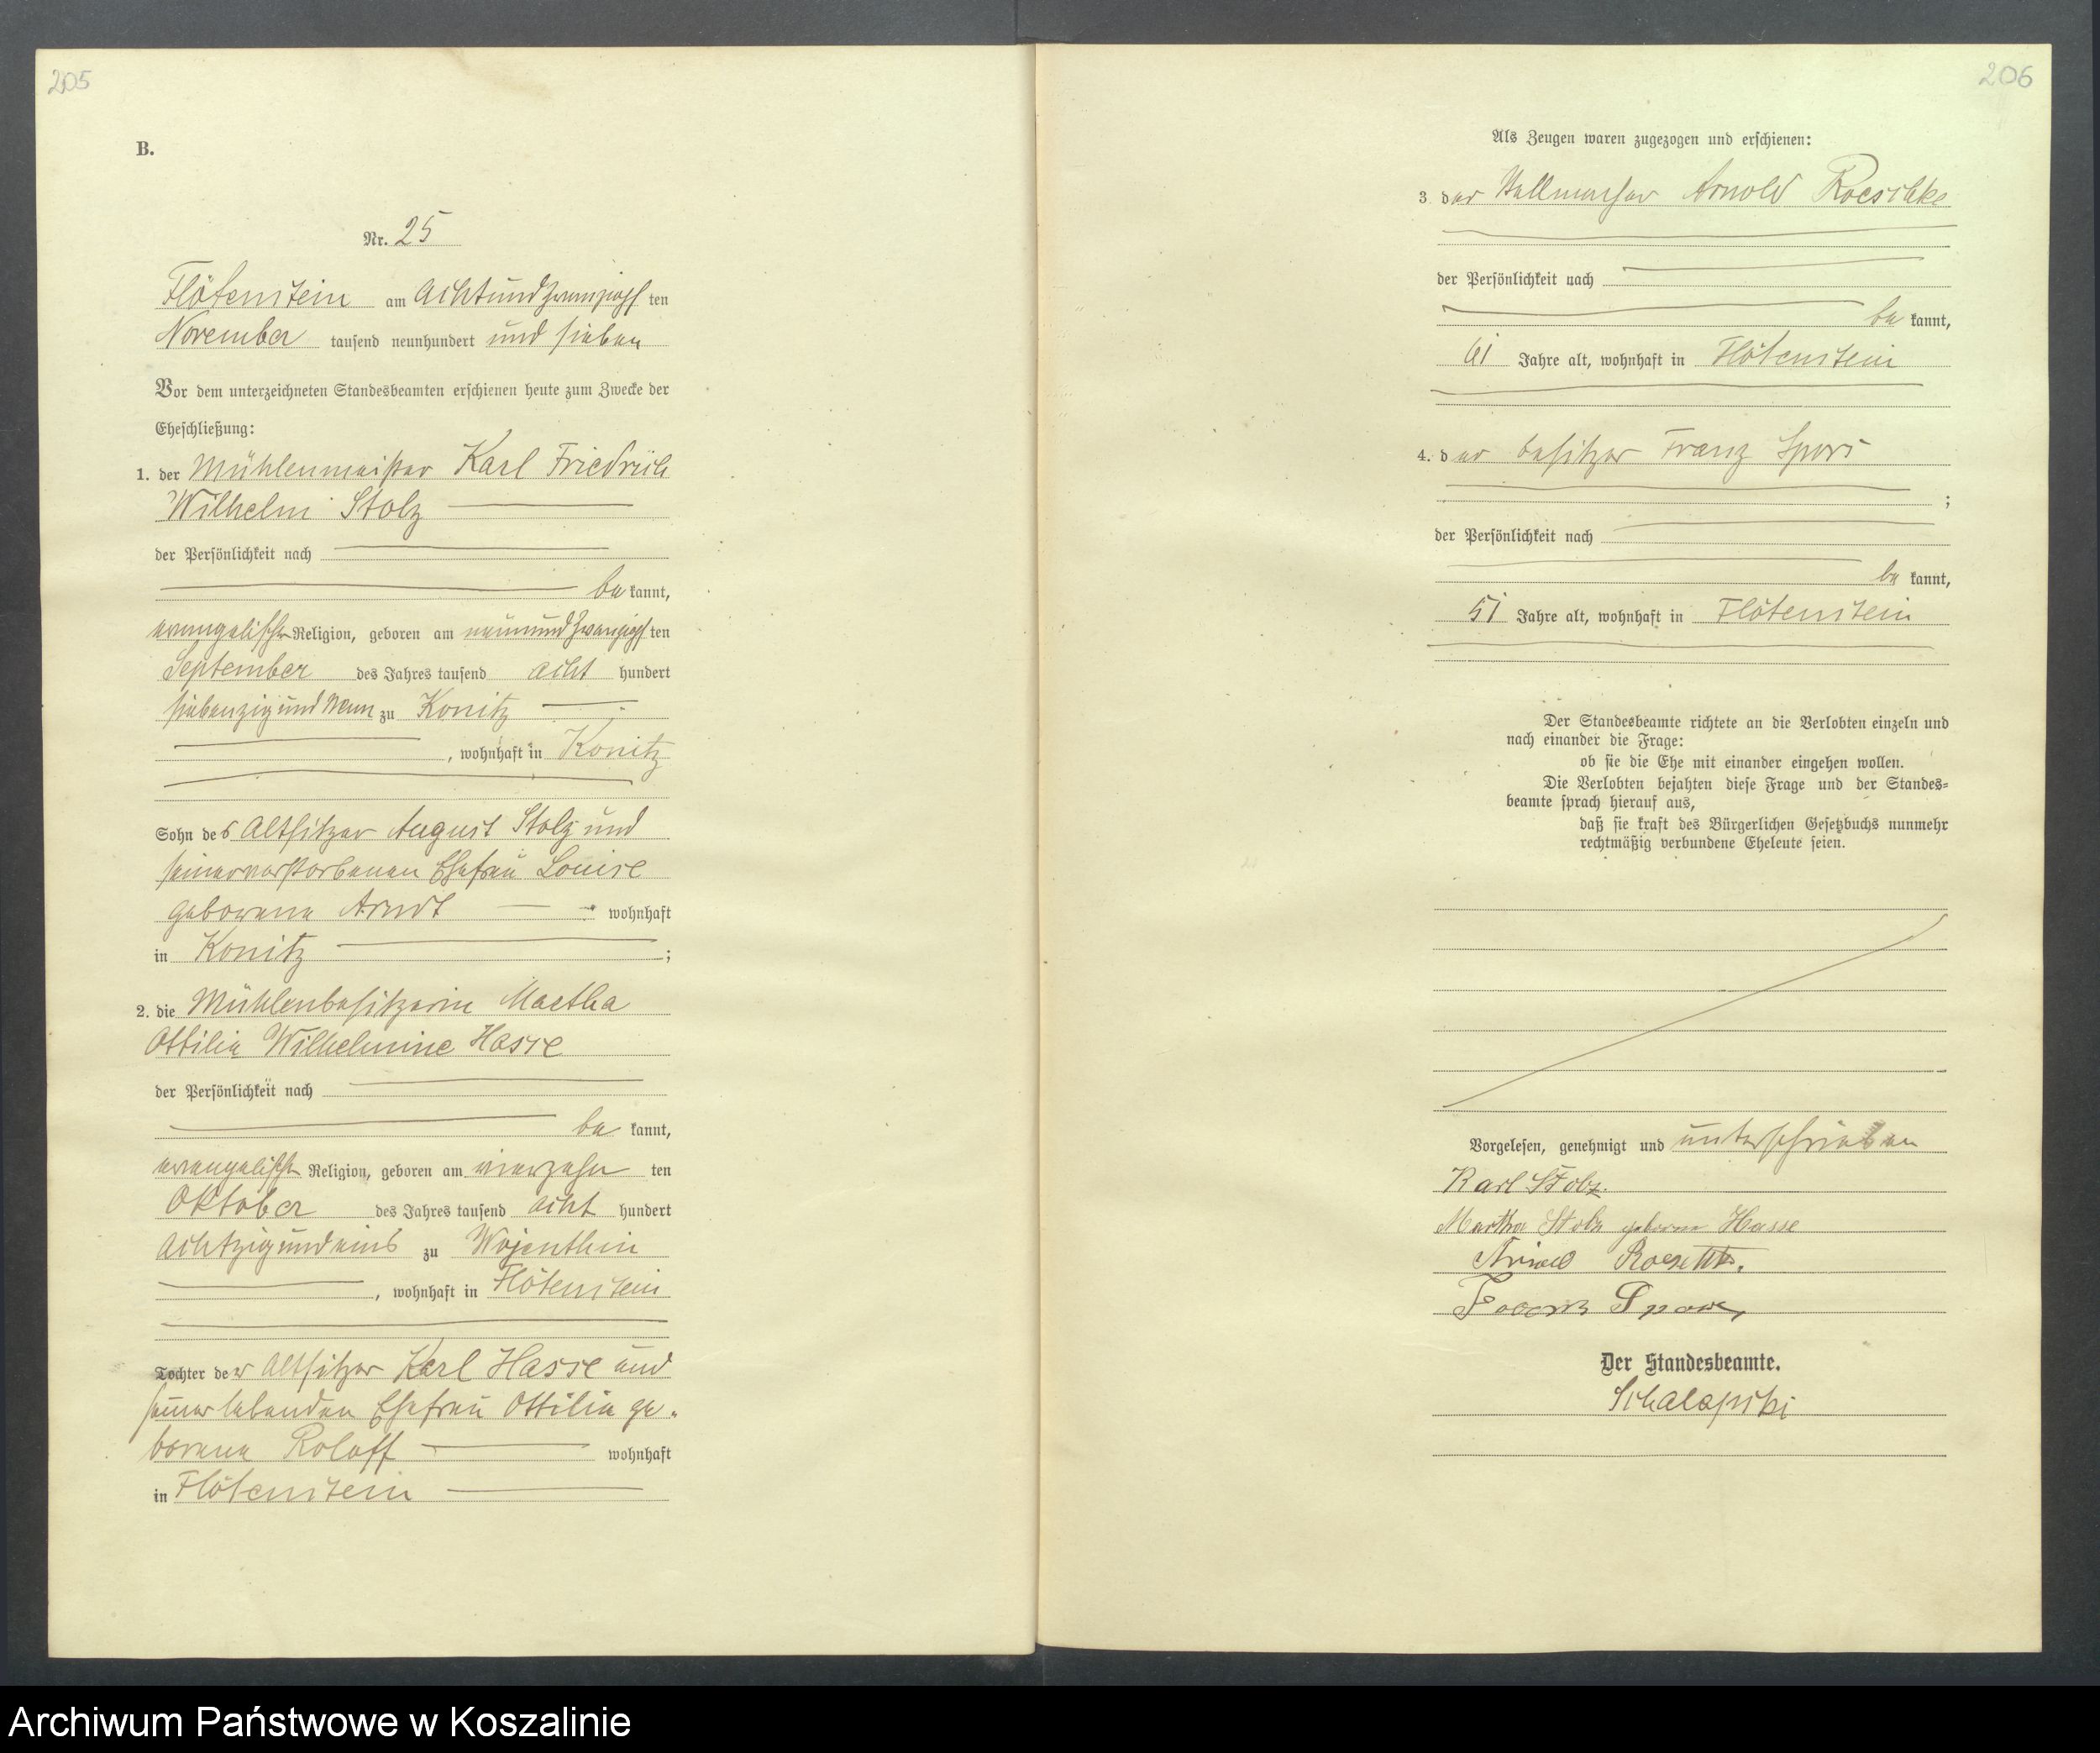 205
B.
Nr. 25
Flötenstein am achtundzwanzigsten
November tausend neunhundert und sieben
Vor dem unterzeichneten Standesbeamten erschienen heute zum Zwecke der
Eheschließung:
1. der Mühlenmeister Karl Friedrich
Wilhelm Stolz
der Persönlichkeit nach
bekannt,
evangelischer Religion, geboren am neunundzwanzigsten
September des Jahres tausend acht hundert
siebenzig und neun zu Konitz
, wohnhaft in Konitz
Sohn des Altsitzer August Stolz und
seiner verstorbenen Ehefrau Louise
geborene Arndt wohnhaft
in Konitz ;
2. die Mühlenbesitzerin Martha
Ottilie Wilhelmine Hasse
der Persönlichkeit nach
bekannt,
evangelischer Religion, geboren am vierzehn ten
Oktober des Jahres tausend acht hundert
achtzig und eins zu Wojenthin
, wohnhaft in Flötenstein
Tochter der Altsitzer Karl Hasse und
seiner lebenden Ehefrau Ottilie ge-
borene Roloff wohnhaft
in Flötenstein
206
Als Zeugen waren zugezogen und erschienen:
3. der Arnold Roeschke
der Persönlichkeit nach
bekannt,
61 Jahre alt, wohnhaft in Flötenstein
4. der Besitzer Franz Spors
;
der Persönlichkeit nach
bekannt,
51 Jahre alt, wohnhaft in Flötenstein
Der Standesbeamte richtete an die Verlobten einzeln und
nach einander die Frage:
ob sie die Ehe mit einander eingehen wollen.
Die Verlobten bejahten diese Frage und der Standes-
beamte sprach hierauf aus,
daß sie kraft des Bürgerlichen Gesetzbuchs nunmehr
rechtmäßig verbundene Eheleute seien.
Vorgelesen, genehmigt und unterschrieben
Karl Stolz.
Martha Stolz geborene Hasse
Arnold Roeschke.
Franz Spors
Der Standesbeamte.
Schalapski
Archiwum Państwowe w Koszalinie